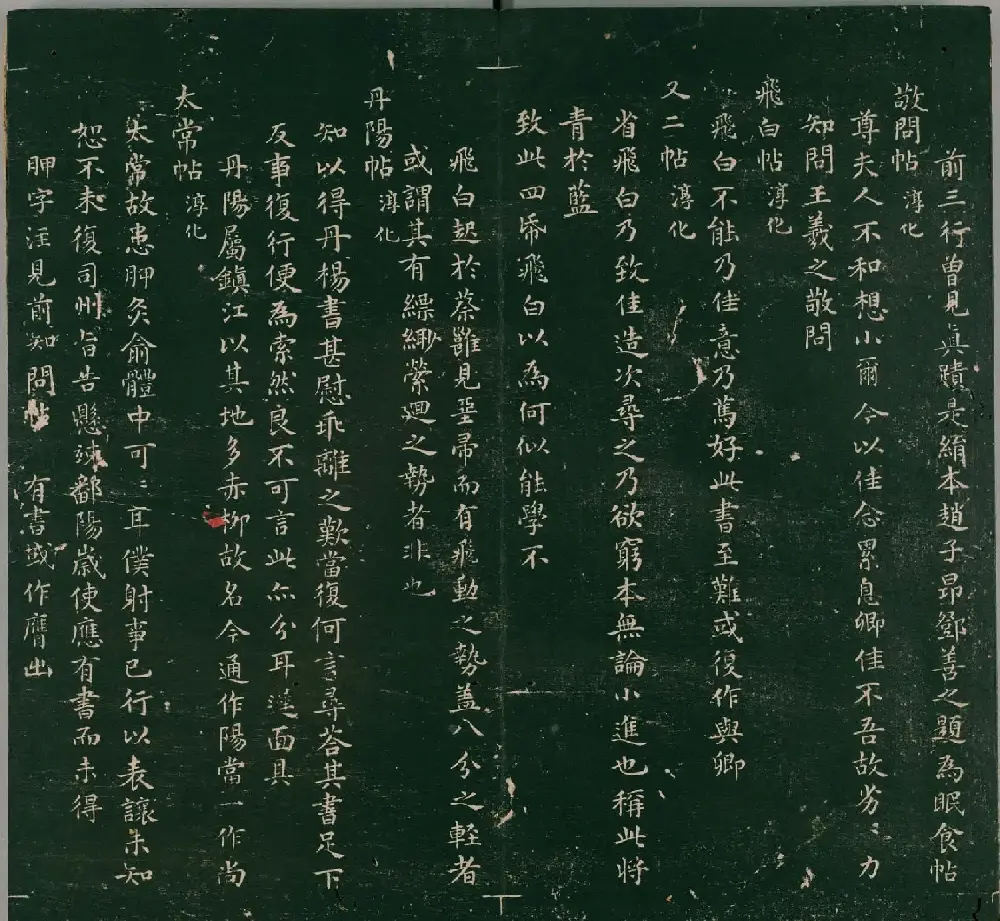 前三行曾見真蹟是絹本趙子昂鄧善之題為眠食帖
敬問帖 淳化
尊夫人不和想小爾今以佳念累息卿佳不吾故劣〻力
知問王羲之敬問
飛白帖 淳化
飛白不能乃佳意乃篤好此書至難或復作與卿
又二帖 淳化
省飛白乃致佳造次尋之乃欲窮本無論小進也稱此將
青於藍
致此四帋飛白以為何似能學不
飛白起於蔡雝見堊帚而有飛動之勢蓋八分之輕者
或謂其有縈廻之勢者非也
丹陽帖 淳化
知以得丹楊書甚慰乖離之歎當復何言尋荅其書足下
反事復行便為索然良不可言此亦分耳遲面具
丹陽屬鎮江以其地多赤柳故名今通作陽當一作尚
太常帖 淳化
太常故患胛灸俞體中可〻耳僕射事已行以表讓未知
恕不耒復司州旨告懸竦鄱陽歲使應有書而未得
胛字注見前知問帖 有書或作膺出